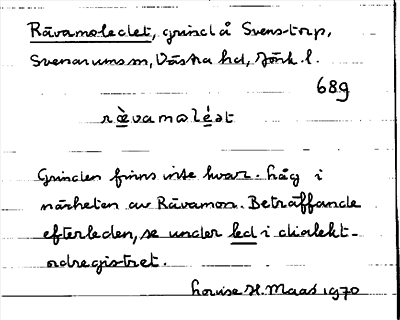 Råvamoledet, grind å Svenstorp,
Svenarums sn, Västra hd, Jönk. l.
689
rævamoléət
Grinden finns inte kvar. Låg i
närheten av Råvamon. Beträffande
efterleden, se under led i dialekt-
ordregistret.
Louise H. Maas 1970